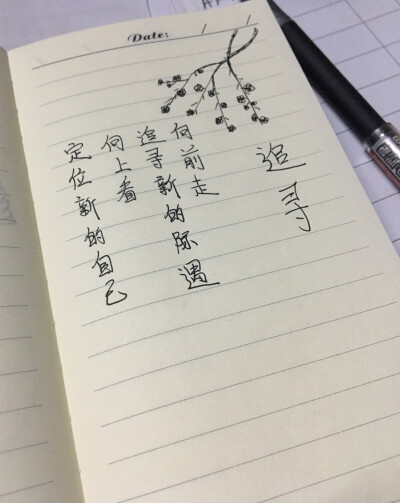 Date:
追寻
向前走
追寻新的际遇
向上看
定位新的自己